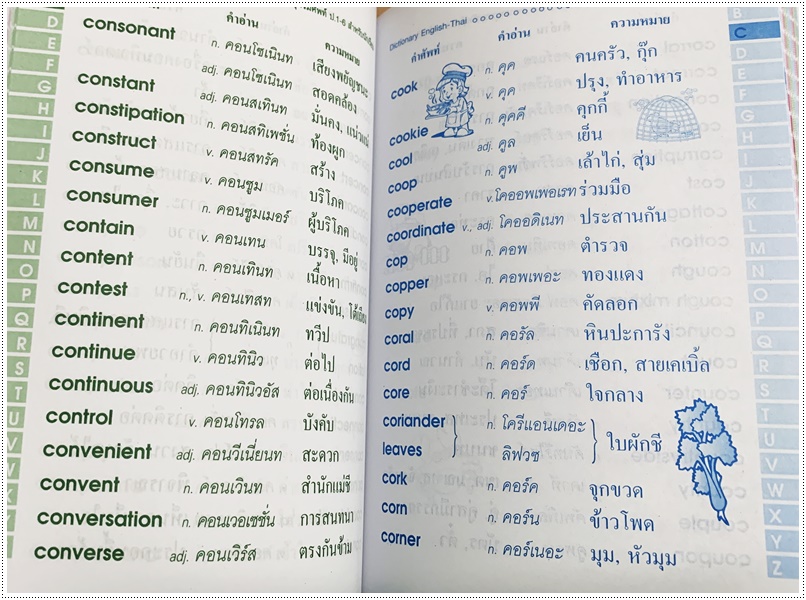 คำอ่าน ความหมาย
consonant n. คอนโซเนินท เสียงพยัญชนะ
adj. คอนโซเนินท สอดคล้อง
constant adj. คอนสเทินท มั่นคง, แน่วแน่
constipation n. คอนสทิเพชั่น ท้องผูก
construct v. คอนสทรัค สร้าง
consume v. คอนซูม บริโภค
consumer n. คอนซูมเมอร์ ผู้บริโภค
contain v. คอนเทน บรรจุ, มีอยู่
content n. คอนเทินท เนื้อหา
contest n., v. คอนเทสท แข่งขัน,
continent n. คอนทิเนินท ทวีป
continue v. คอนทินิว ต่อไป
continuous adj. คอนทินิวอัส ต่อเนื่องกัน
control v. คอนโทรล บังคับ
convenient adj. คอนวีเนี่ยนท สะดวก
convent n. คอนเวินท สำนักแม่ชี
conversation n. คอนเวอเซชั่น การสนทนา
converse adj. คอนเวิร์ส ตรงกันข้าม
D
E
F
G
H
I
J
K
L
M
N
O
P
Q
R
S
T
U
V
Dictionary English-Thai
คำศัพท์ คำอ่าน ความหมาย
cook n. คุค คนครัว, กุ๊ก
v. คุค ปรุง, ทำอาหาร
cookie n. คุคคี คุกกี้
cool adj. คูล เย็น
coop n. คูพ เล้าไก่, สุ่ม
cooperate v. โคออพเพอเรท ร่วมมือ
coordinate v., adj. โคออดิเนท ประสานกัน
cop n. คอพ ตำรวจ
copper n. คอพเพอะ ทองแดง
copy v. คอพพี คัดลอก
coral n. คอรัล หินปะการัง
cord n. คอร์ด เชือก, สายเคเบิ้ล
core n. คอร์ ใจกลาง
coriander n. โครีแอนเดอะ
leaves ลิฟวซ ใบผักชี
cork n. คอร์ค จุกขวด
corn n. คอร์น ข้าวโพด
corner n. คอร์เนอะ มุม, หัวมุม
B
C
D
E
F
G
H
I
J
K
L
M
N
O
P
Q
R
S
T
U
V
W
X
Y
Z